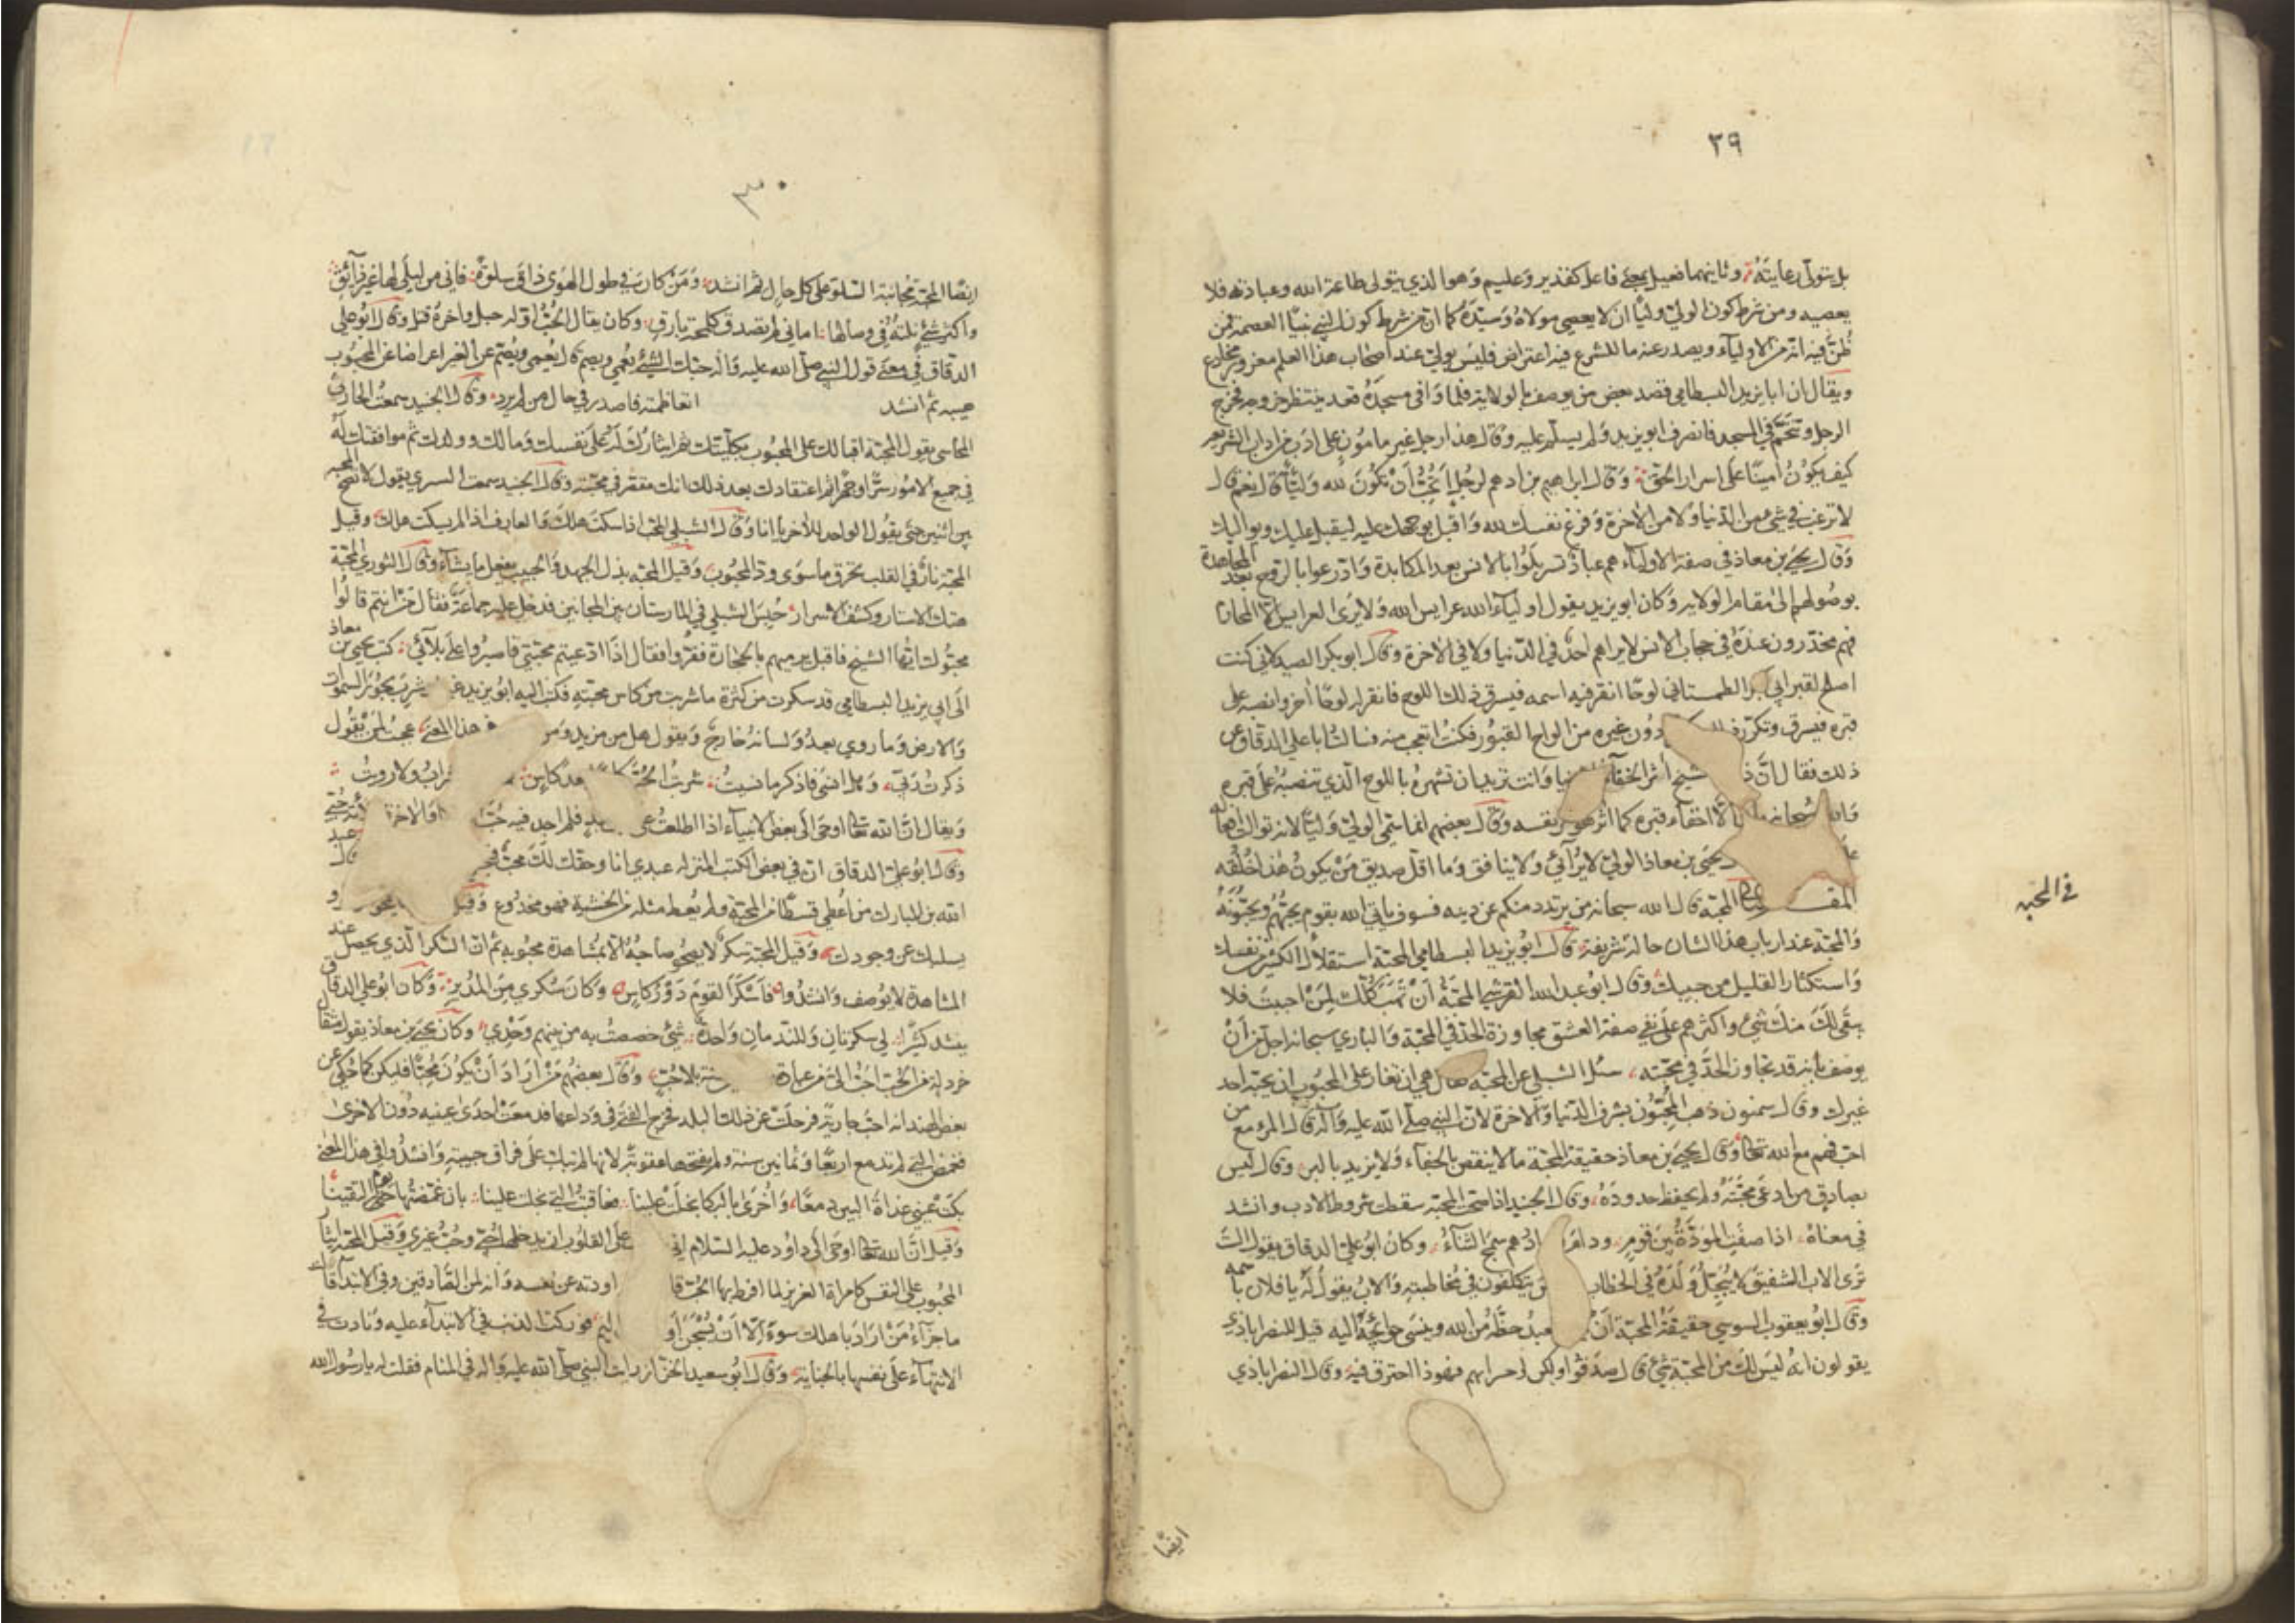 ٣٩
بل يتولى رعايته وثانيهما فعيل بمعنى فاعل كقدير وعليم وهو الذي يتولى طاعة الله وعبادته فلا
يعصيه ومن شرط كون الولي وليا ان لا يعصي مولاه وسيده كما ان من شرط كون النبي نبيا العصمة فمن
ظن فيه انه من الاولياء ويصدر عنه ما للشرع فيه اعتراض فليس بولي عند اصحاب هذا العلم مغرور مخادع
ويقال ان ابا يزيد البسطامي قصد بعض من يوصف بالولاية فلما وافى مسجده قعد ينتظر خروجه فخرج
الرجل وتنخم في المسجد فانصرف ابو يزيد ولم يسلم عليه وقال هذا رجل غير مامون على ادب من اداب الشريعة
كيف يكون امينا على اسرار الحق وقال ابراهيم بن ادهم لرجل اتحب أن تكون لله وليا قال نعم قال
لا ترغب في شيء من الدنيا ولا من الاخرة وفرغ نفسك لله واقبل بوجهك عليه ليقبل عليك ويواليك
وقال يحيى بن معاذ في صفة الاولياء هم عباد تسربلوا بالانس بعد المكابدة وادرعوا بالروح بعد المجاهدة
بوصولهم الى مقام الولاية وكان ابو يزيد يقول اولياء الله عرايس الله ولا يرى العرايس الا المحارم
فهم مخدرون عنده في حجاب الانس لا يراهم احد في الدنيا ولا في الاخرة وقال ابو بكر الصيدلاني كنت
اصلح لقبر ابي بكر الطمستاني لوحا انقر فيه اسمه فيسرق ذلك اللوح فانقر له لوحا اخر وانصبه على
قبره فيسرق وتكرر دون غيره من الواح القبور فكنت اتعجب منه فسالت ابا علي الدقاق عن
ذلك فقال ان الشيخ آثر الخفاء وانت تريد ان تشهره باللوح الذي تنصبه على قبره
وان سبحانه الا اخفاء قبره كما آثر هو نفسه وقال بعضهم انما سمي الولي وليا لانه توالت افعاله
يحيى بن معاذ الولي لا يرائي ولا ينافق وما اقل صديق من يكون هذا خلقه
المحبة قال الله سبحانه من يرتدد منكم عن دينه فسوف ياتي الله بقوم يحبهم ويحبونه
في المحبه
والمحبة عند ارباب هذا الشان حالة شريفة قال ابو يزيد البسطامي المحبة استقلال الكثير من نفسك
واستكثار القليل من حبيبك وقال ابو عبد الله القرشي المحبة أن تهب كلك لمن احببت فلا
يبقى لك منك شيء واكثرهم على نفي صفة العشق مجاوزة الحد في المحبة والباري سبحانه اجل من أن
يوصف بانه قد تجاوز الحد في محبته سئل الشبلي عن المحبة فقال هي ان تغار على المحبوب ان يحبه احد
غيرك وقال سمنون ذهب المحبون بشرف الدنيا والاخرة لان النبي صلى الله عليه وآله قال المرء مع من
احب فهم مع الله تعالى وقال يحيى بن معاذ حقيقة المحبة ما لا ينقص بالجفاء ولا يزيد بالبر وقال ليس
بصادق من ادعى محبته ولم يحفظ حدوده وقال الجنيد اذا صحت المحبة سقطت شروط الادب وانشد
في معناه اذا صفت المودة بين قوم ودام ودادهم سمج الثناء وكان ابو علي الدقاق يقول الست
ترى الاب الشفيق لا يبجل ولده في الخطاب يتكلفون في مخاطبته والاب يقول له يا فلان باسمه
وقال ابو يعقوب السوسي حقيقة المحبة أن العبد حظه من الله وينسى حوائجه اليه قيل للنصراباذي
يقولون انه ليس لك من المحبة شيء قال صدقوا ولكن لي حسراتهم فهو ذا احترق فيه وقال النصراباذي
ايضا
٣٠
ايضا المحبة مجانبة السلو على كل حال ثم انشد ومن كان في طول الهوى ذاق سلوة فاني من ليلى لها غير ذائق
واكثر شيء نلته في وصالها اماني لم تصدق كلمحة بارق وكان يقال الحب اوله حبل واخره قتل وقال ابو علي
الدقاق في معنى قول النبي صلى الله عليه وآله حبك الشيء يعمي ويصم قال يعمي ويصم عن الغير اعراضا عن المحبوب
هيبة ثم انشد اتعاظمته فاصدر في حال من لم يرد وقال الجنيد سمعت الحارث
المحاسبي يقول المحبة اقبالك على المحبوب بكليتك ثم ايثارك له على نفسك ومالك وولدك ثم موافقتك له
في جميع الامور سرا وجهرا ثم اعتقادك بعد ذلك انك مقصر في محبته وقال الجنيد سمعت السري يقول لا تصح المحبه
بين اثنين حتى يقول الواحد للاخر يا انا وقال الشبلي المحب اذا سكت هلك والعارف اذا لم يسكت هلك وقيل
المحبة نار في القلب تحرق ما سوى ود المحبوب وقيل المحبة بذل الجهد والحبيب يفعل ما يشاء وقال النوري المحبة
هتك الاستار وكشف الاسرار حبس الشبلي في المارستان بين المجانين فدخل عليه جماعة فقال من انتم قالوا
محبوك ايها الشيخ فاقبل يرميهم بالحجارة ففروا فقال اذا ادعيتم محبتي فاصبروا على بلائي كتب يحيى بن معاذ
الى ابي يزيد البسطامي قد سكرت من كثرة ما شربت من كاس محبته فكتب اليه ابو يزيد شرب بحور السموات
والارض وما روي بعد ولسانه خارج ويقول هل من مزيد هذا المعنى عجبت لمن يقول
ذكرت ربي وهل انسى فاذكر ما نسيت شربت الحب كاسا بعد كاس الشراب ولا رويت
ويقال ان الله تعالى اوحى الى بعض الانبياء اذا اطلعت على عبد فلم اجد فيه حب والاخرة
وقال ابو علي الدقاق ان في بعض الكتب المنزلة عبدي انا وحقك لك محب قال عبد
الله بن المبارك من اعطي قسطا من المحبة ولم يعط مثله من الخشية فهو مخدوع وقيل
يسلبك عن وجودك وقيل المحبة سكر لا يصحو صاحبه الا بمشاهدة محبوبه ثم ان السكر الذي يحصل عند
المشاهدة لا يوصف وانشدوا فاسكر القوم دور كاس وكان سكري من المدير وكان ابو علي الدقاق
ينشد كثيرا لي سكرتان وللندمان واحدة شيء خصصت به من بينهم وحدي وكان يحيى بن معاذ يقول مثقال
خردلة من الحب احب الي من عبادة سنة بلا حب وقال بعضهم من اراد أن يكون محبا فليكن كما حكي عن
بعض الهند انه احب جارية فرحلت عن ذلك البلد فخرج الفتى في وداعها فدمعت احدى عينيه دون الاخرى
فغمض التي لم تدمع اربعا وثمانين سنة ولم يفتحها عقوبة لانها لم تبك على فراق حبيبته وانشدوا في هذا المعنى
بكت عيني غداة البين دمعا واخرى بالبكا بخلت علينا فعاقبت التي بخلت علينا بان غمضتها يوم التقينا
وقيل ان الله تعالى اوحى الى داود عليه السلام اني على القلوب ان يدخلها حبي وحب غيري وقيل المحبة ايثار
المحبوب على النفس كامراة العزيز لما افرط بها الحب قا راودته عن نفسه وانه لمن الصادقين وفي الابتدا قالت
ما جزاء من اراد باهلك سوءا الا ان يسجن أو اليم فوركت الذنب في الابتداء عليه ونادت في
الانتهاء على نفسها بالخيانة وقال ابو سعيد الخراز رايت النبي صلى الله عليه وآله في المنام فقلت له يا رسول الله